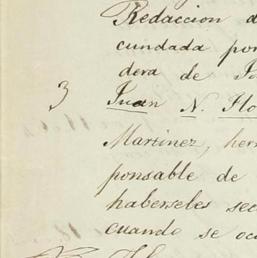 Redaccion d
cundada por
dera de
3 Juan N. Flo
Martinez, her
ponsable de
haberseles sec
cuando se oc